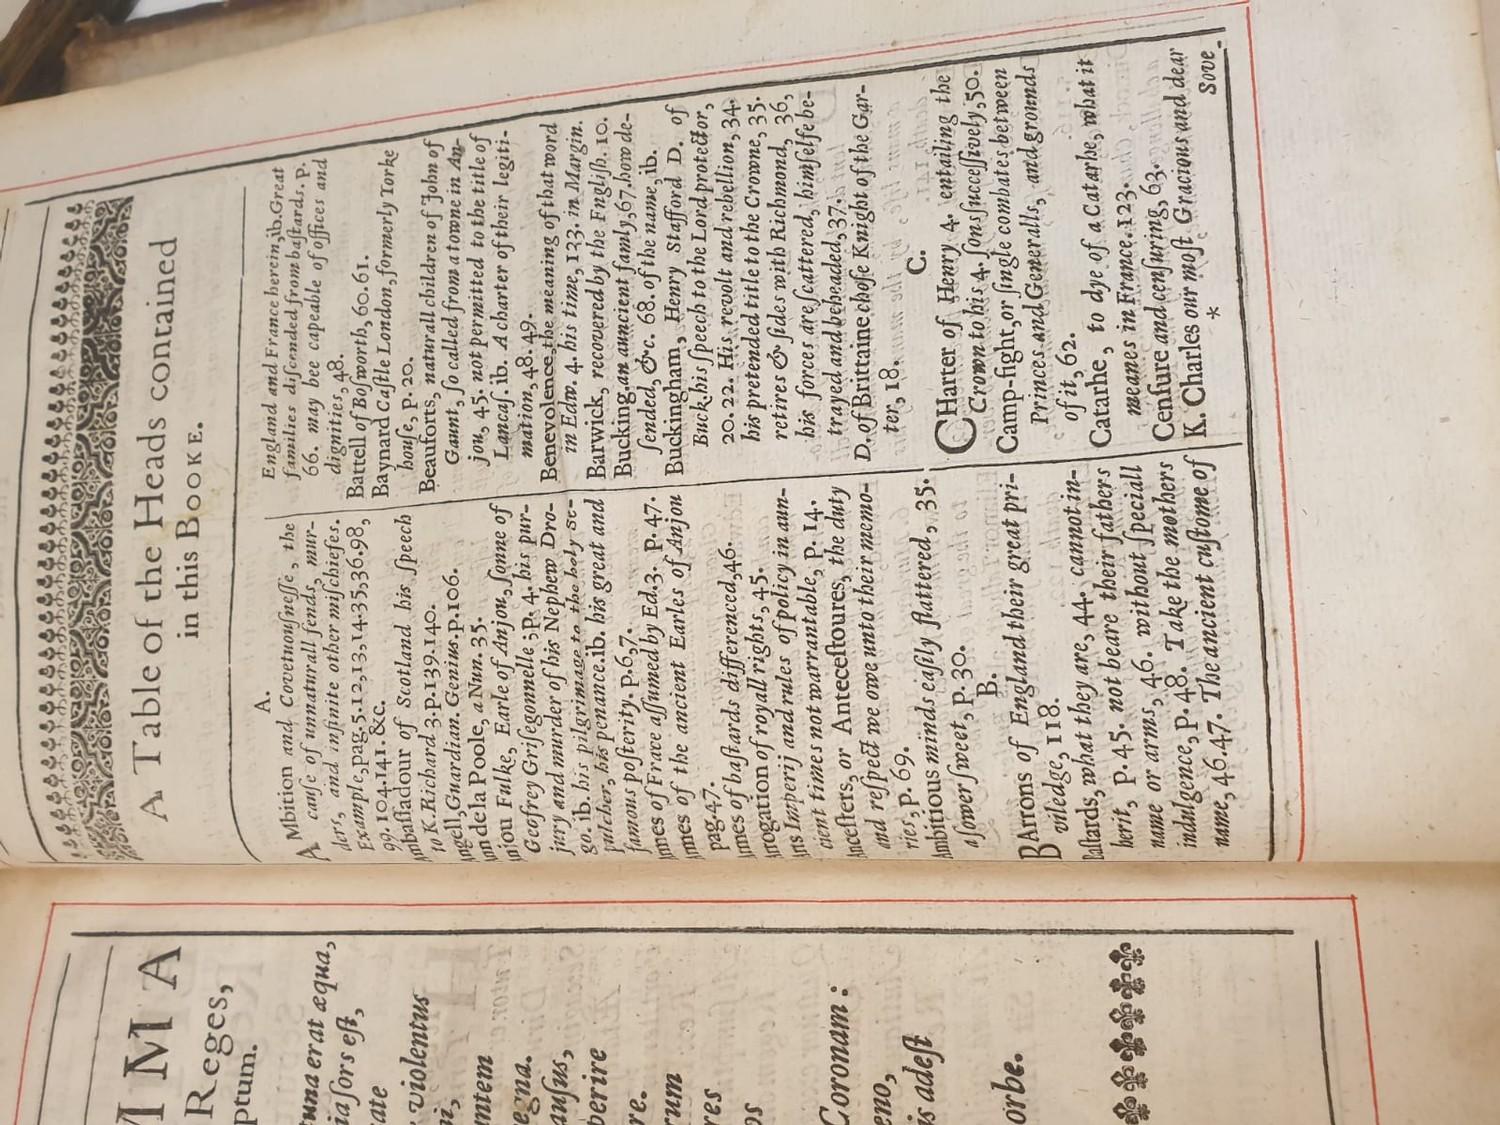 A Table of the Heads contained
in this BOOKE.
A.
AMbition and Covetnousnesse, the
cause of unnaturall fends, mur-
ders, and infinite other mischiefes.
Example, pag. 5. 12, 13, 14. 35, 36. 98,
99. 104. 141. &c.
mbassadour of Scotland his speech
to K. Richard 3. p. 139. 140.
ngell, Guardian. Genius. p. 106.
nn de la Poole, a Nun. 35.
njou Fulke, Earle of Anjou, sonne of
Geofrey Grisegonnelle; p. 4. his pur-
jury and murder of his Nephew Dro-
go. ib. his pilgrimage to the holy Se-
pulcher, his penance. ib. his great and
famous posterity. p. 6, 7.
rmes of Frace assumed by Ed. 3. p. 47.
rmes of the ancient Earles of Anjou
pag. 47.
rmes of bastards differenced, 46.
rrogation of royall rights, 45.
rts Imperij and rules of policy in aun-
cient times not warrantable, p. 14.
ncesters, or Antecestoures, the duty
and respect we owe unto their memo-
ries, p. 69.
Ambitious minds easily flattered, 35.
a sower sweet, p. 30.
B.
BArrons of England their great pri-
viledge, 118.
Bastards, what they are, 44. cannot in-
herit, p. 45. not beare their fathers
name or armes, 46. without speciall
indulgence, p. 48. Take the mothers
name, 46. 47. The ancient custome of
England and France herein, ib. Great
families discended from bastards. p.
66. may bee capeable of offices and
dignities, 48.
Battell of Bosworth, 60. 61.
Baynard Castle London, formerly Yorke
house, p. 20.
Beauforts, naturall children of John of
Gaunt, so called from a towne in An-
jou, 45. not permitted to the title of
Lancas. ib. A charter of their legiti-
mation, 48. 49.
Benevolence, the meaning of that word
in Edw. 4. his time, 133. in Margin.
Barwick, recovered by the English. 10.
Bucking. an auncient famly, 67. how de-
sended, &c. 68. of the name, ib.
Buckingham, Henry Stafford D. of
Buck. his speech to the Lord protector,
20. 22. His revolt and rebellion, 34.
his pretended title to the Crowne, 35.
retires & sides with Richmond, 36,
his forces are scattered, himselfe be-
trayed and beheaded, 37.
D. of Brittaine chose Knight of the Gar-
ter, 18.
C.
CHarter of Henry 4. entailing the
Crown to his 4. sons successively, 50.
Camp-fight, or single combates between
Princes and Generalls, and grounds
of it, 62.
Catarhe, to dye of a Catarhe, what it
meanes in France. 123.
Censure and censuring, 63.
K. Charles our most Gracious and dear
*
Sove-
MMA
Reges,
ptum.
una erat æqua,
ia sors est,
ate
violentus
ni,
ntem
egna.
ausus,
berire
re.
rum
res
os
Coronam:
eno,
is adest
orbe.